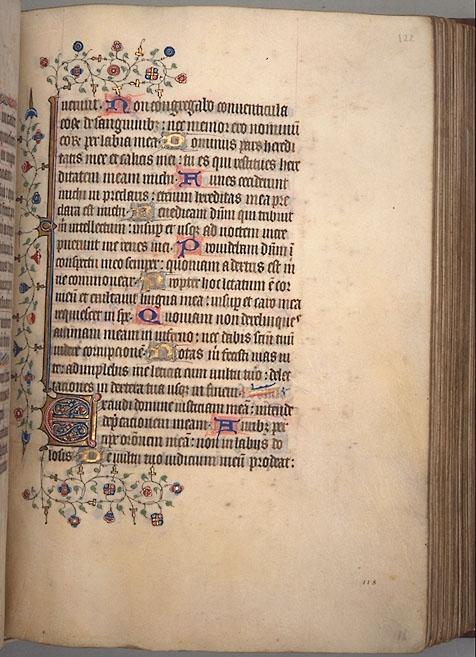 122
uerunt. Non congregabo conuenticula
eoꝝ de sanguinibꝫ: nec memor ero nominū
eoꝝ per labia mea. Dominus pars heredi
tatis mee et calicis mei: tu es qui restitues here
ditatem meam michi. Funes ceciderunt
michi in preclaris: etenim hereditas mea pre
clara est michi. Benedicam dūm qui tribuit
m̄ intellectum: insup̄ et usqꝫ ad noctem incre
puerunt me renes mei. Prouidebam dūm ī
conspectu meo semper: quoniam a dextris est m̄
ne commouear. Propter hoc letatum ē cor
meū et exultauit lingua mea: insup̄ et caro mea
requiescet in spe. Quoniam non derelinques
animam meam in inferno: nec dabis scm̄ tuū
uidere corrupcionē. Notas m̄ fecisti uias ui
te: adimplebis me leticia cum uultu tuo: delec
taciones in dextera tua usqꝫ in finem.
Exaudi domine iusticiam meā: intende
dep̄cacionem meam. Auribꝫ per
cipe orōnem meā: non in labijs do
losis. De uultu tuo iudicium meū prodeat:
118